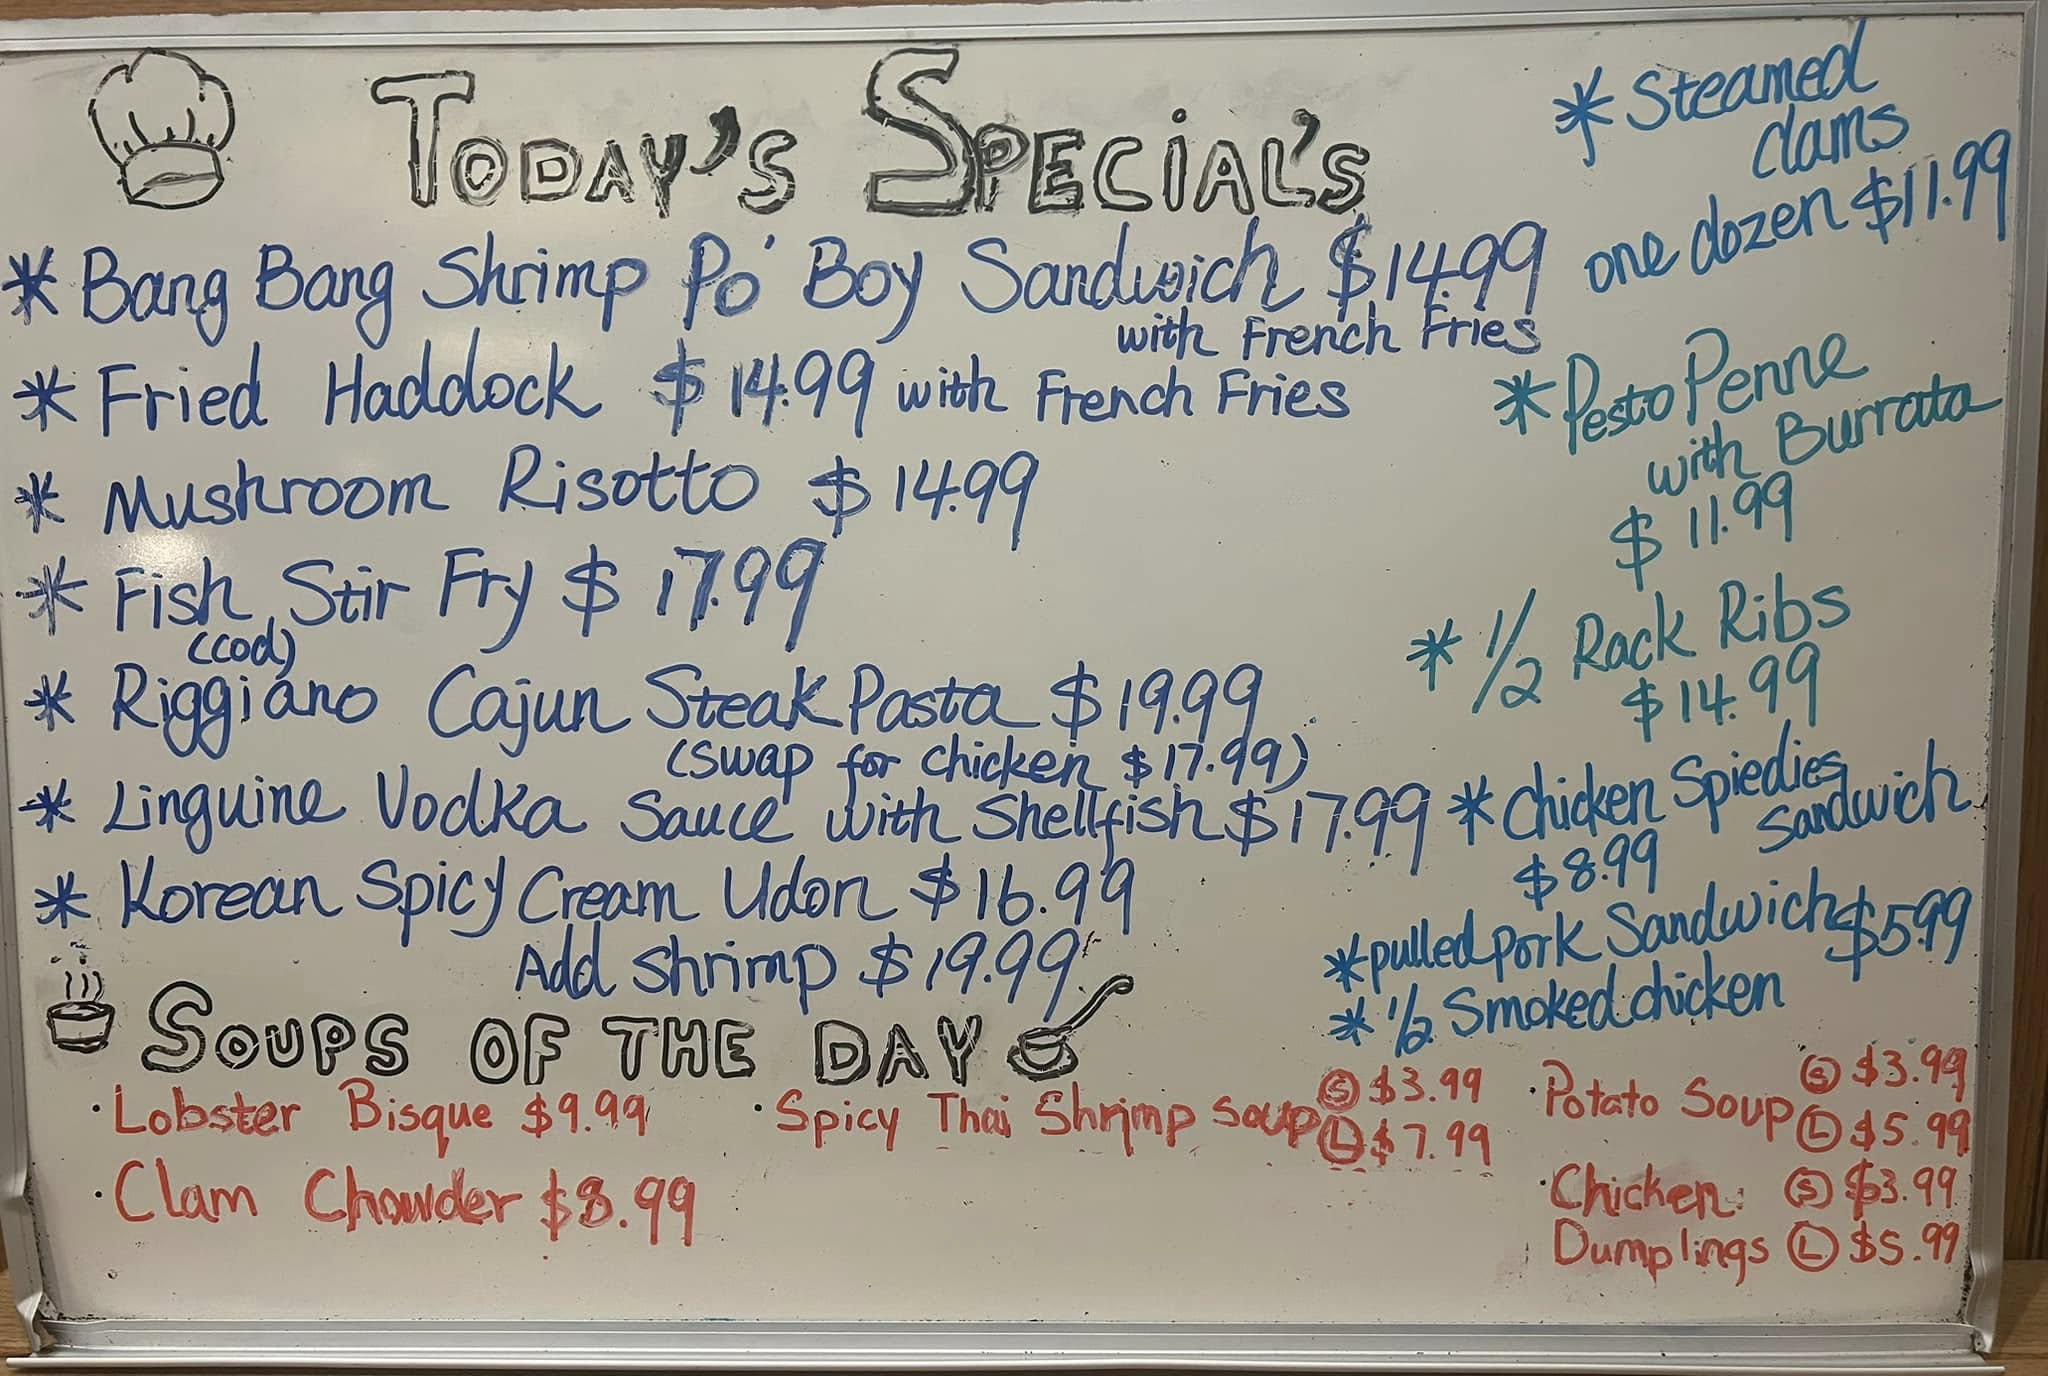 TODAY'S SPECIAL'S
* Bang Bang Shrimp Po' Boy Sandwich $14.99
with French Fries
* Fried Haddock $14.99 with French Fries
* Mushroom Risotto $14.99
* Fish Stir Fry $17.99
(cod)
* Riggiano Cajun Steak Pasta $19.99
(swap for chicken $17.99)
* Linguine Vodka Sauce with Shellfish $17.99
* Korean Spicy Cream Udon $16.99
Add shrimp $19.99
* Steamed
clams
one dozen $11.99
* Pesto Penne
with Burrata
$11.99
* 1/2 Rack Ribs
$14.99
* Chicken Spiedies
Sandwich
$8.99
* pulled pork Sandwich $5.99
* 1/2 Smoked chicken
SOUPS OF THE DAY
· Lobster Bisque $9.99
· Clam Chowder $8.99
· Spicy Thai Shrimp Soup Ⓢ $3.99
Ⓛ $7.99
· Potato Soup Ⓢ $3.99
Ⓛ $5.99
· Chicken Ⓢ $3.99
Dumplings Ⓛ $5.99